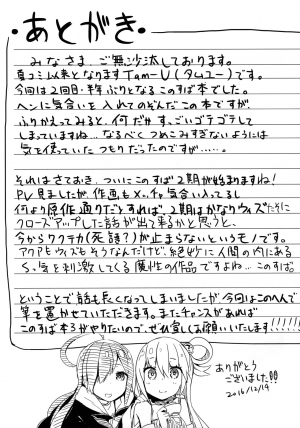 ・あとがき・
みなさま、ご無沙汰しております。
夏コミ以来となりますTam-U(タムユー)です。
今回は2回目・半年ぶりとなるこのすば本でした。
ヘンに気合いを入れてのぞんだこの本ですが、
ふりかえってみると、何だかす、ごいゴテゴテして
しまっていますね…なるべくつめこみすぎないようには
気を使っていたつもりだったのですが……。
それはさておき、ついにこのすば2期が始まりますね!
PV見ましたが作画もメッチャ気合い入ってるし
何より原作通りだとすれば、2期はかなりウィズたそに
クローズアップした話が出て来るかと思うと、
今からワクテカ(死語?)が止まらないというモノです。
アクアもウィズもそうなんだけど、絶妙に人間の内にある
S,気を刺激してくる魔性の作品ですよね…このすば。
ということで話も長くなってしまいましたが今回はこのへんで
筆を置かせていただきます。またチャンスがあれば
このすば本3がやりたいので、ぜひ宜しくお願いいたします!!!!
ありがとう
ございました!!
2016/12/19